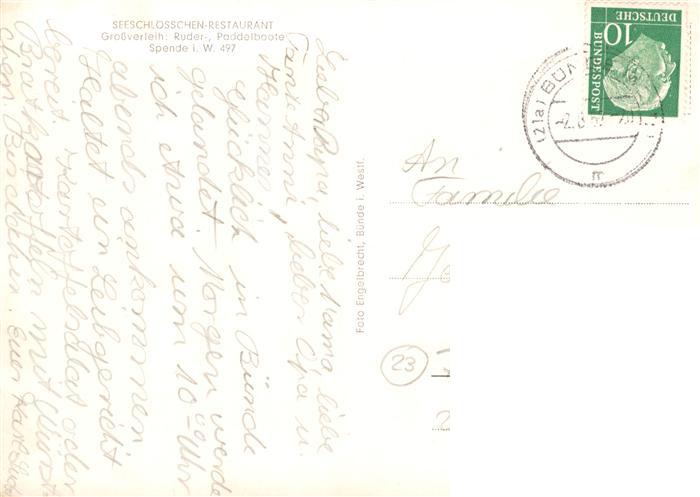 SEESCHLÖSSCHEN-RESTAURANT
Großverleih: Ruder-, Paddelboote
Spende i. W. 497
Lieber Papa, liebe Mama, liebe
Tant Anni, lieber Opa u.
Hannes,
glücklich in Bünde
gelandet. Morgen werde
ich etwa um 10 Uhr
abends ankommen
Haltet ein Leibgericht
bereit. Kartoffelsalat oder
Bratkartoffeln mit Würst-
chen. Euer
Foto Engelbrecht, Bünde i. Westf.
10
DEUTSCHE
BUNDESPOST
(21a) BÜN
-2.8.5
m
An
Familie
23